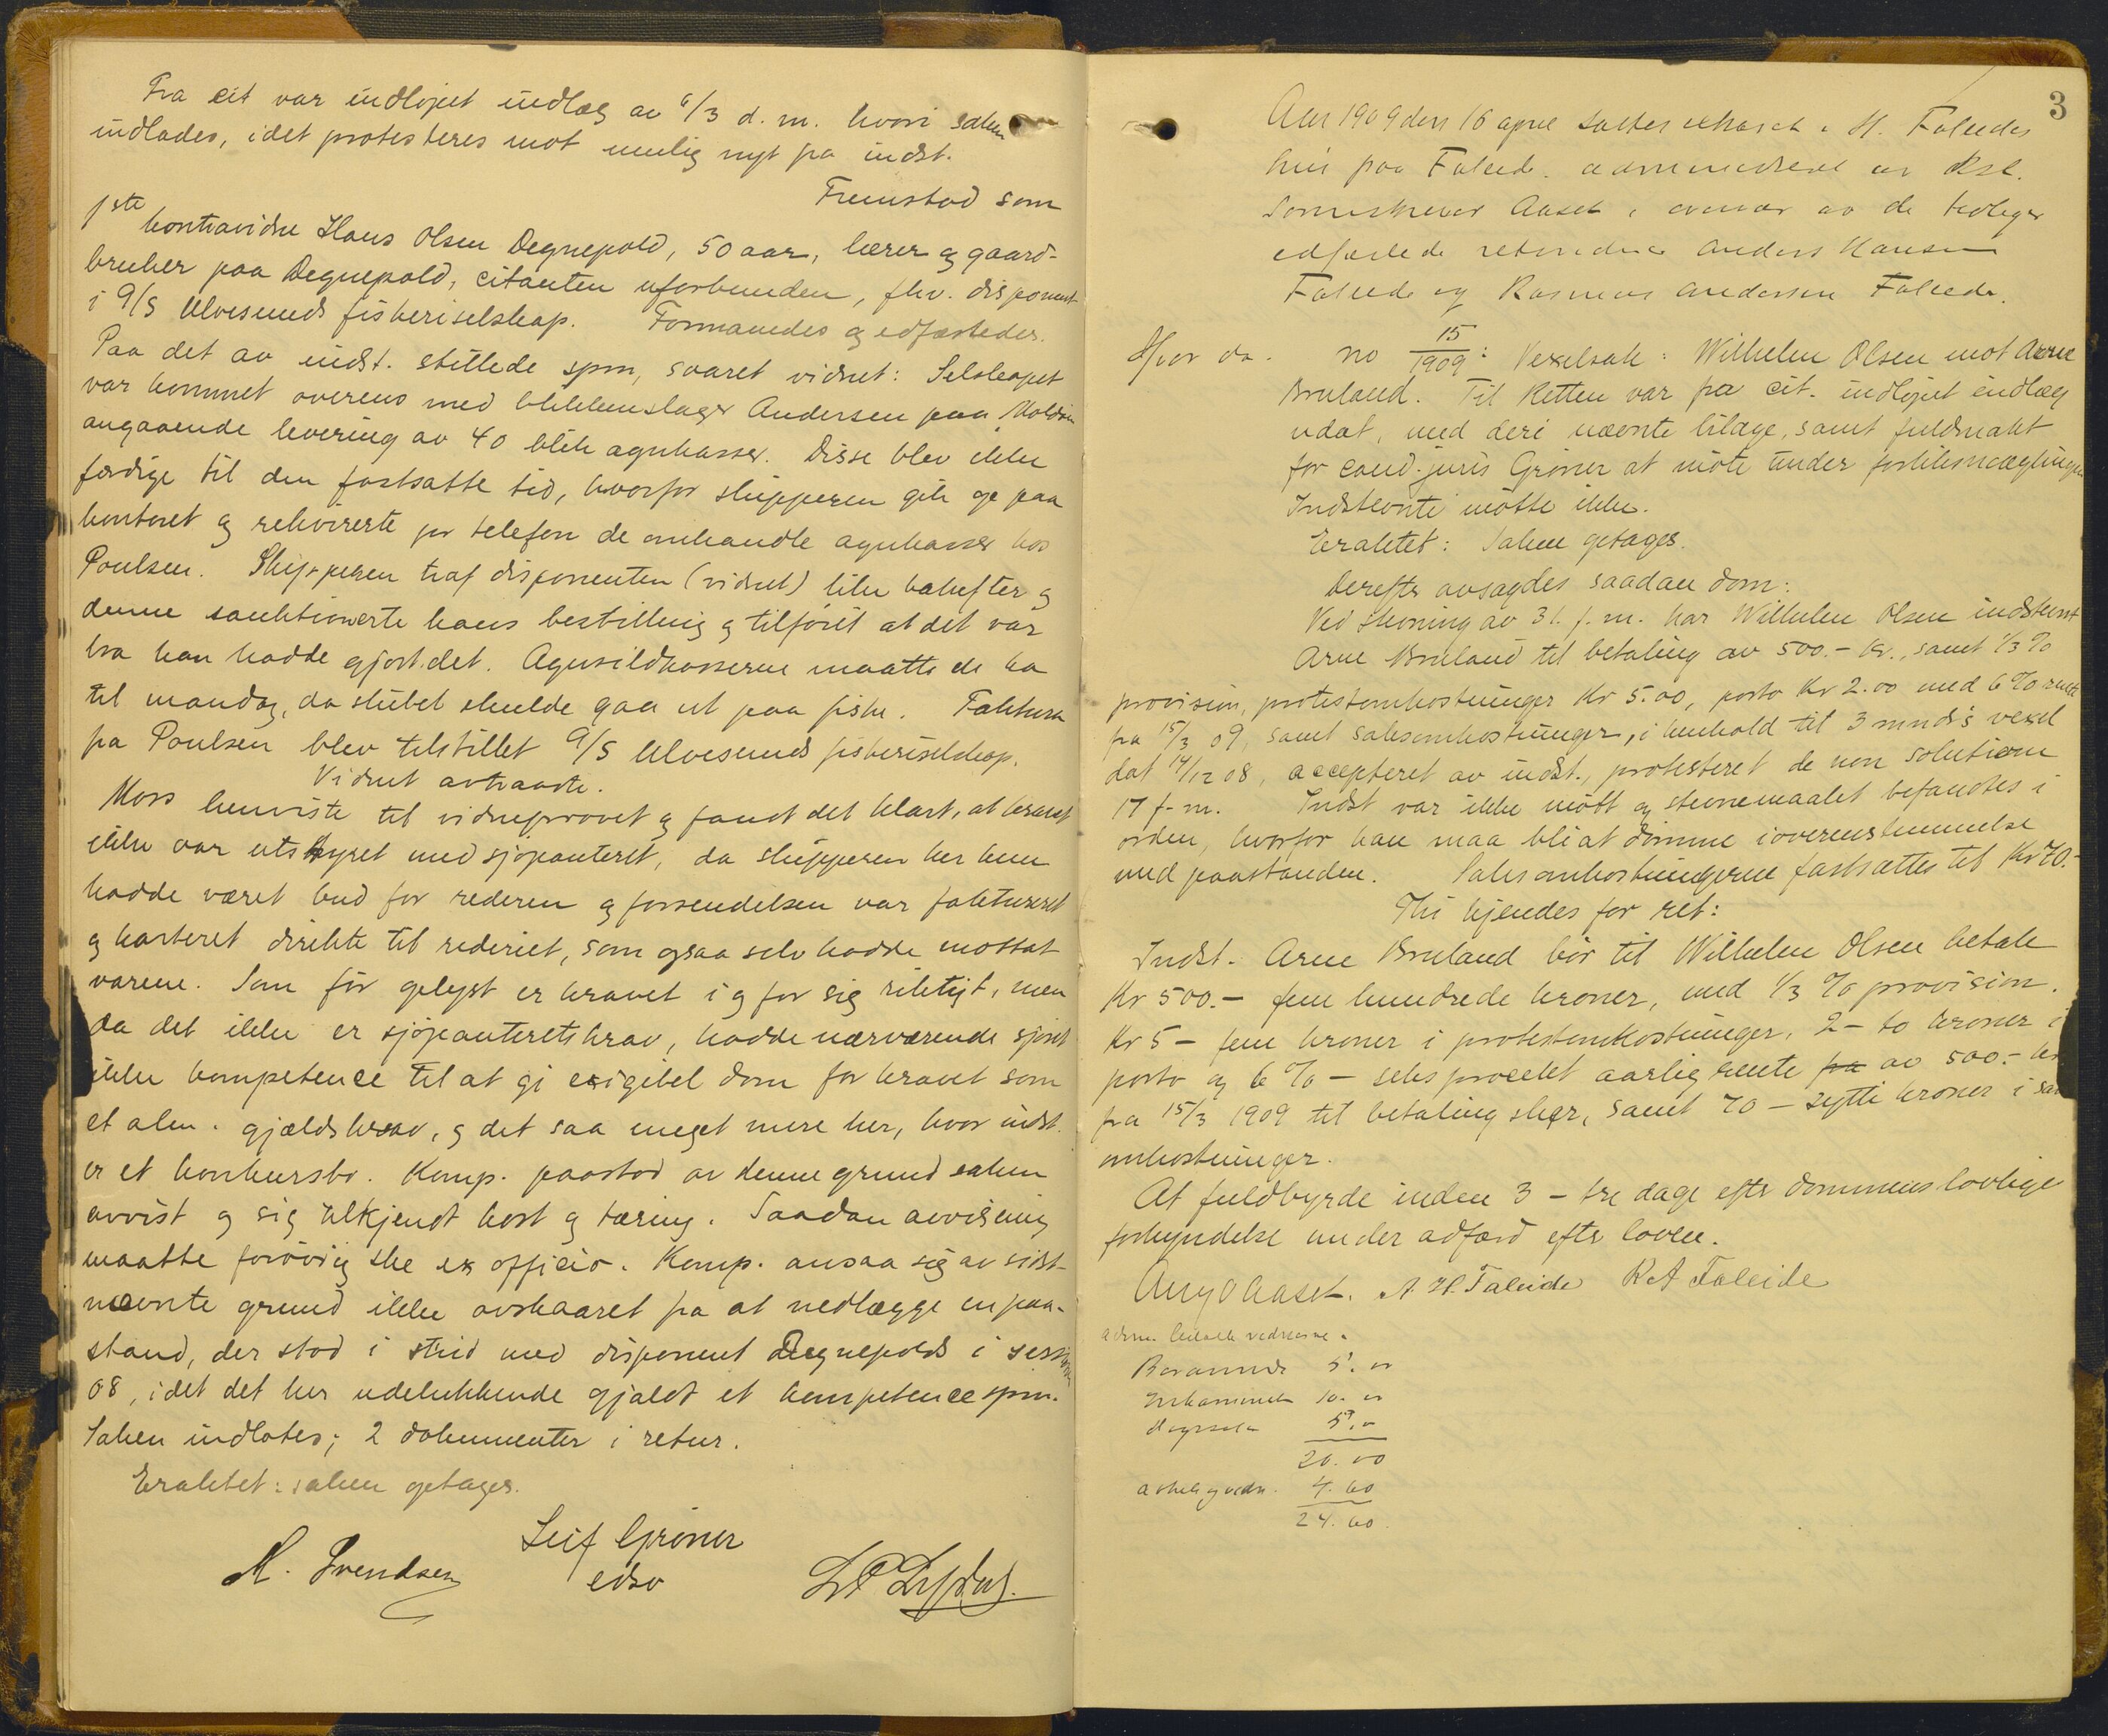 Fra cit var indløpet indlæg av 6/3 d. m. hvori saken
indlades, idet protesteres mot mulig nyt fra indst.
Fremstod som
1ste kontravidne Hans Olsen Degnepold, 50 aar, lærer og gaard-
bruker paa Degnepold, citanten uforbunden, fhv. disponent
i A/S Ulvesunds fiskeriselskap. Formanedes og edfæstedes.
Paa det av indst. stillede spm, svaret vidnet: Selskapet
var kommet overens med blikkenslager Andersen paa Moldøen
angaaende levering av 40 blik agnkasser. Disse blev ikke
færdige til den fastsatte tid, hvorfor skipperen gik op paa
kontoret og rekvirerte pr telefon de omhandle agnkasser hos
Poulsen. Skipperen traf disponenten (vidnet) like bakefter og
denne sanktionerte hans bestilling og tilføiet at det var
bra han hadde gjort det. Agnsildkasserne maatte de ha
til mandag, da skibet skulde gaa ut paa fiske. Faktura
fra Poulsen blev tilstillet A/S Ulvesunds fiskeriselskap.
Vidnet avtraadte.
Moss henviste til vidneprovet og fandt det klart, at kravet
ikke var utstyret med sjøpanteret, da skipperen her kun
hadde været bud for rederen og forsendelsen var faktureret
og karteret direkte til rederiet, som ogsaa selv hadde mottat
varene. Som før oplyst er kravet i og for sig riktigt, men
da det ikke er sjøpanteretskrav, hadde nærværende sjøret
ikke kompetence til at gi exigibel dom for kravet som
et alm. gjældskrav, og det saa meget mere her, hvor indst.
er et konkursbo. Komp. paastod av denne grund saken
avvist og sig tilkjendt kost og tæring. Saadan avvisning
maatte forøvrig ske ex officio. Komp. ansaa sig av sidst-
nævnte grund ikke avskaaret fra at nedlægge en paa-
stand, der stod i strid med disponent Degnepolds i
08, idet det her udelukkende gjaldt et kompetencespm.
Saken indlotes; 2 dokumenter i retur.
Eraktet: saken optages.
Leif Grøner
M. Svendsen edsv
Aar 1909 den 16 april sattes ekstraret i H. Faleides
hus paa Faleide administreret av kst.
Sorenskriver Aaset, overvær av de tidligere
edfæstede retsvidner Anders Hansen
Faleide og Rasmus Andersen Faleide.
Hvor da. no 15/1909: Vexelsak: Wilhelm Olsen mot Arne
Bruland. Til Retten var fra cit. indløpet indlæg
udat, med deri nævnte bilage, samt fuldmakt
for cand. juris Grøner at møte under forliksmæglingen
Indstevnte møtte ikke.
Eraktet: Saken optages.
Derefter avsagdes saadan dom:
Ved stevning av 31. f. m. har Wilhelm Olsen indstevnt
Arne Bruland til betaling av 500.- kr., samt 1/3 %
provision, protestomkostninger Kr 5.00, porto Kr 2.00 med 6 % rente
fra 15/3 09, samt saksomkostninger, i henhold til 3 mnds's vexel
dat 14/12 08, accepteret av indst., protesteret de non solutione
17 f. m. Indst var ikke møtt og stevnemaalet befandtes i
orden, hvorfor han maa bli at dømme i overenstemmelse
med paastanden. Saksomkostningerne fastsættes til Kr 70.-
Thi kjendes for ret:
Indst. Arne Bruland bør til Wilhelm Olsen betale
Kr 500.- fem hundrede kroner, med 1/3 % provision.
Kr 5 - fem kroner i protestomkostninger, 2 - to kroner i
porto og 6 % - seks procent aarlig rente fra av 500.- kr
fra 15/3 1909 til betaling skjer, samt 70 - sytti kroner i saks
omkostninger.
At fuldbyrde inden 3 - tre dage efter dommens lovlige
forkyndelse under adfærd efter loven.
Aug O Aaset. A. H. Faleide R A Faleide
5.
10.
5.
20.00
4.60
24.60